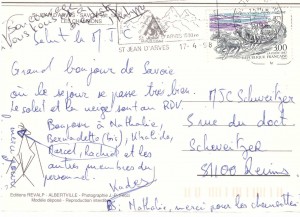 ST JEAN D'ARVES - SAVOIE
Salut le MJC
ST JEAN D'ARVES
17-4-98
3,00
Grand bonjour de Savoie
où le séjour se passe très bien.
Le soleil et la neige sont au RDV.
Bonjour à Nathalie,
Bernadette (bis), Khalida,
Marcel, Rachid et les
autres membres du
personnel.
MJC Schweitzer
rue du doct.
Schweitzer
51100 Reims
Editions REVALP - ALBERTVILLE - Photographie
Modèle déposé - Reproduction interdite
Nathalie, merci pour les